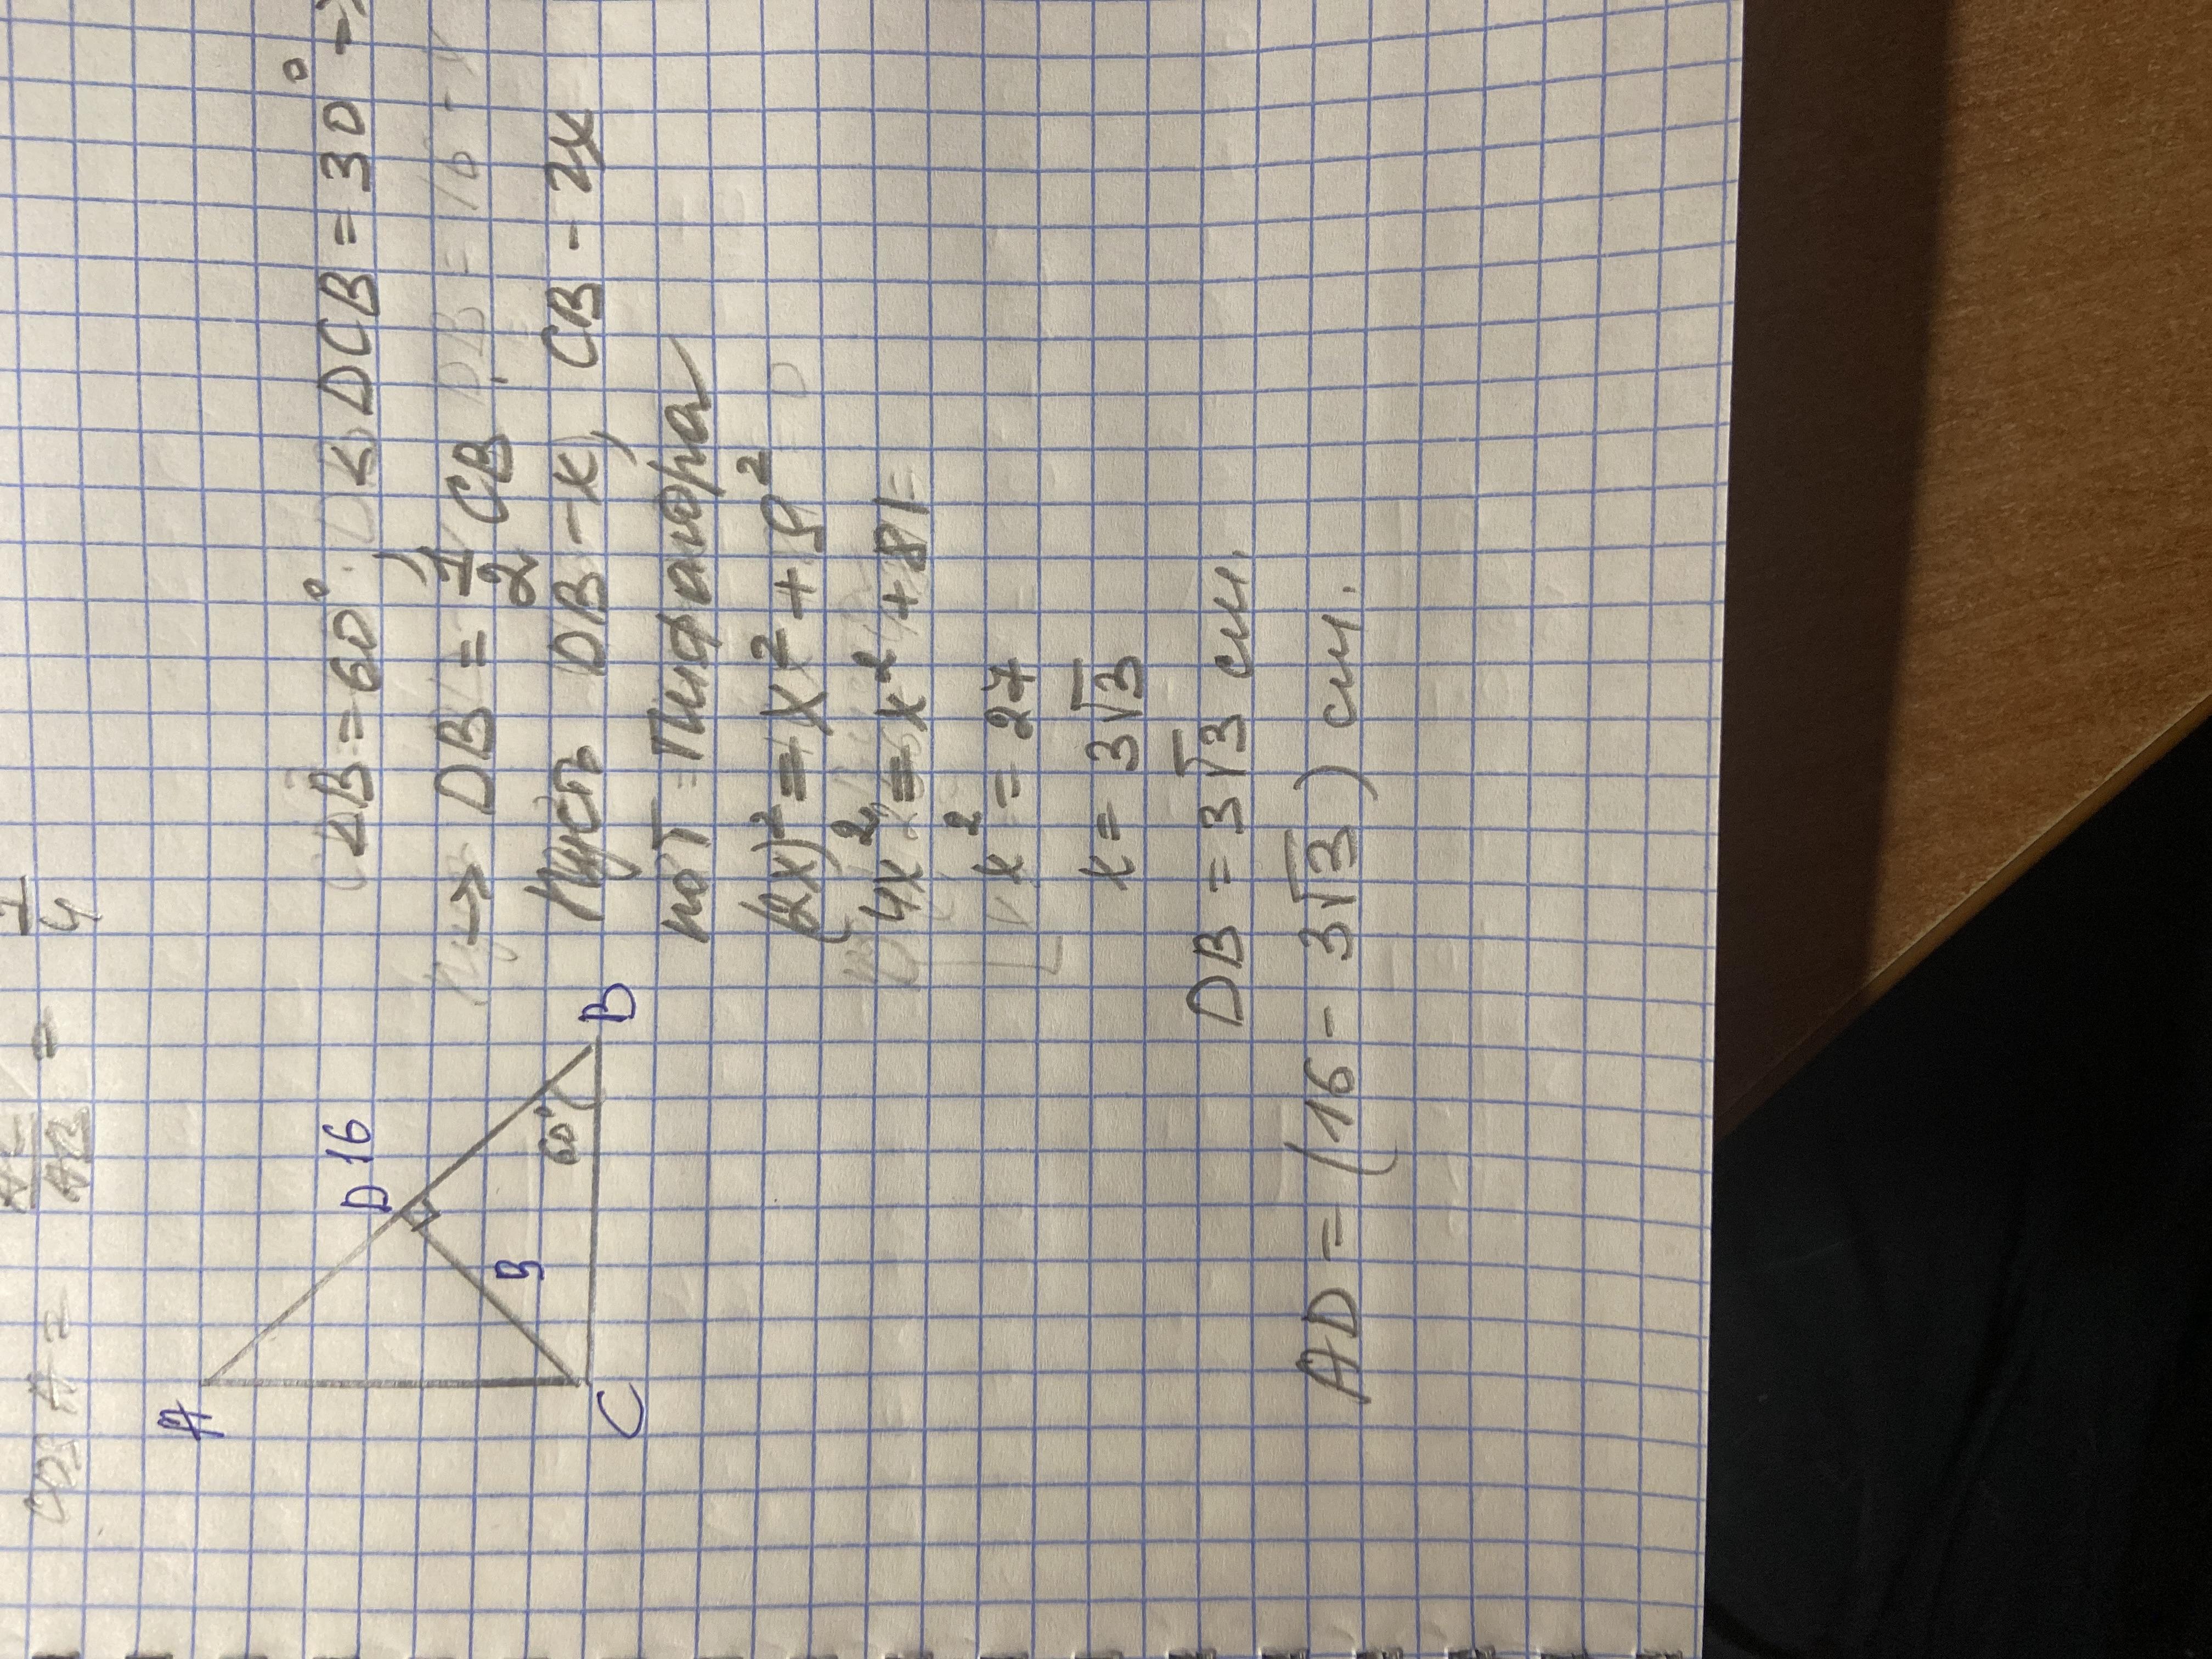 cos A = AC/AB = 1/4
A
D 16
9
60°
C
B
∠B = 60°. ∠DCB = 30° →
→ DB = 1/2 CB.
Пусть DB - x, CB - 2x
по т. Пифагора
(2x)² = x² + 9²
4x² = x² + 81
x² = 27
x = 3√3
DB = 3√3 см.
AD = (16 - 3√3) см.